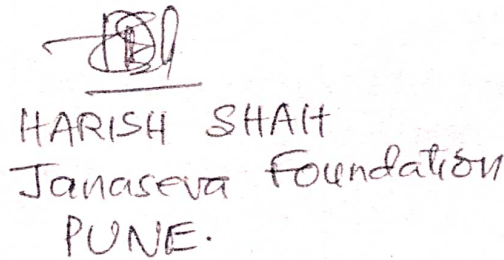 HARISH SHAH
Janaseva Foundation
PUNE.